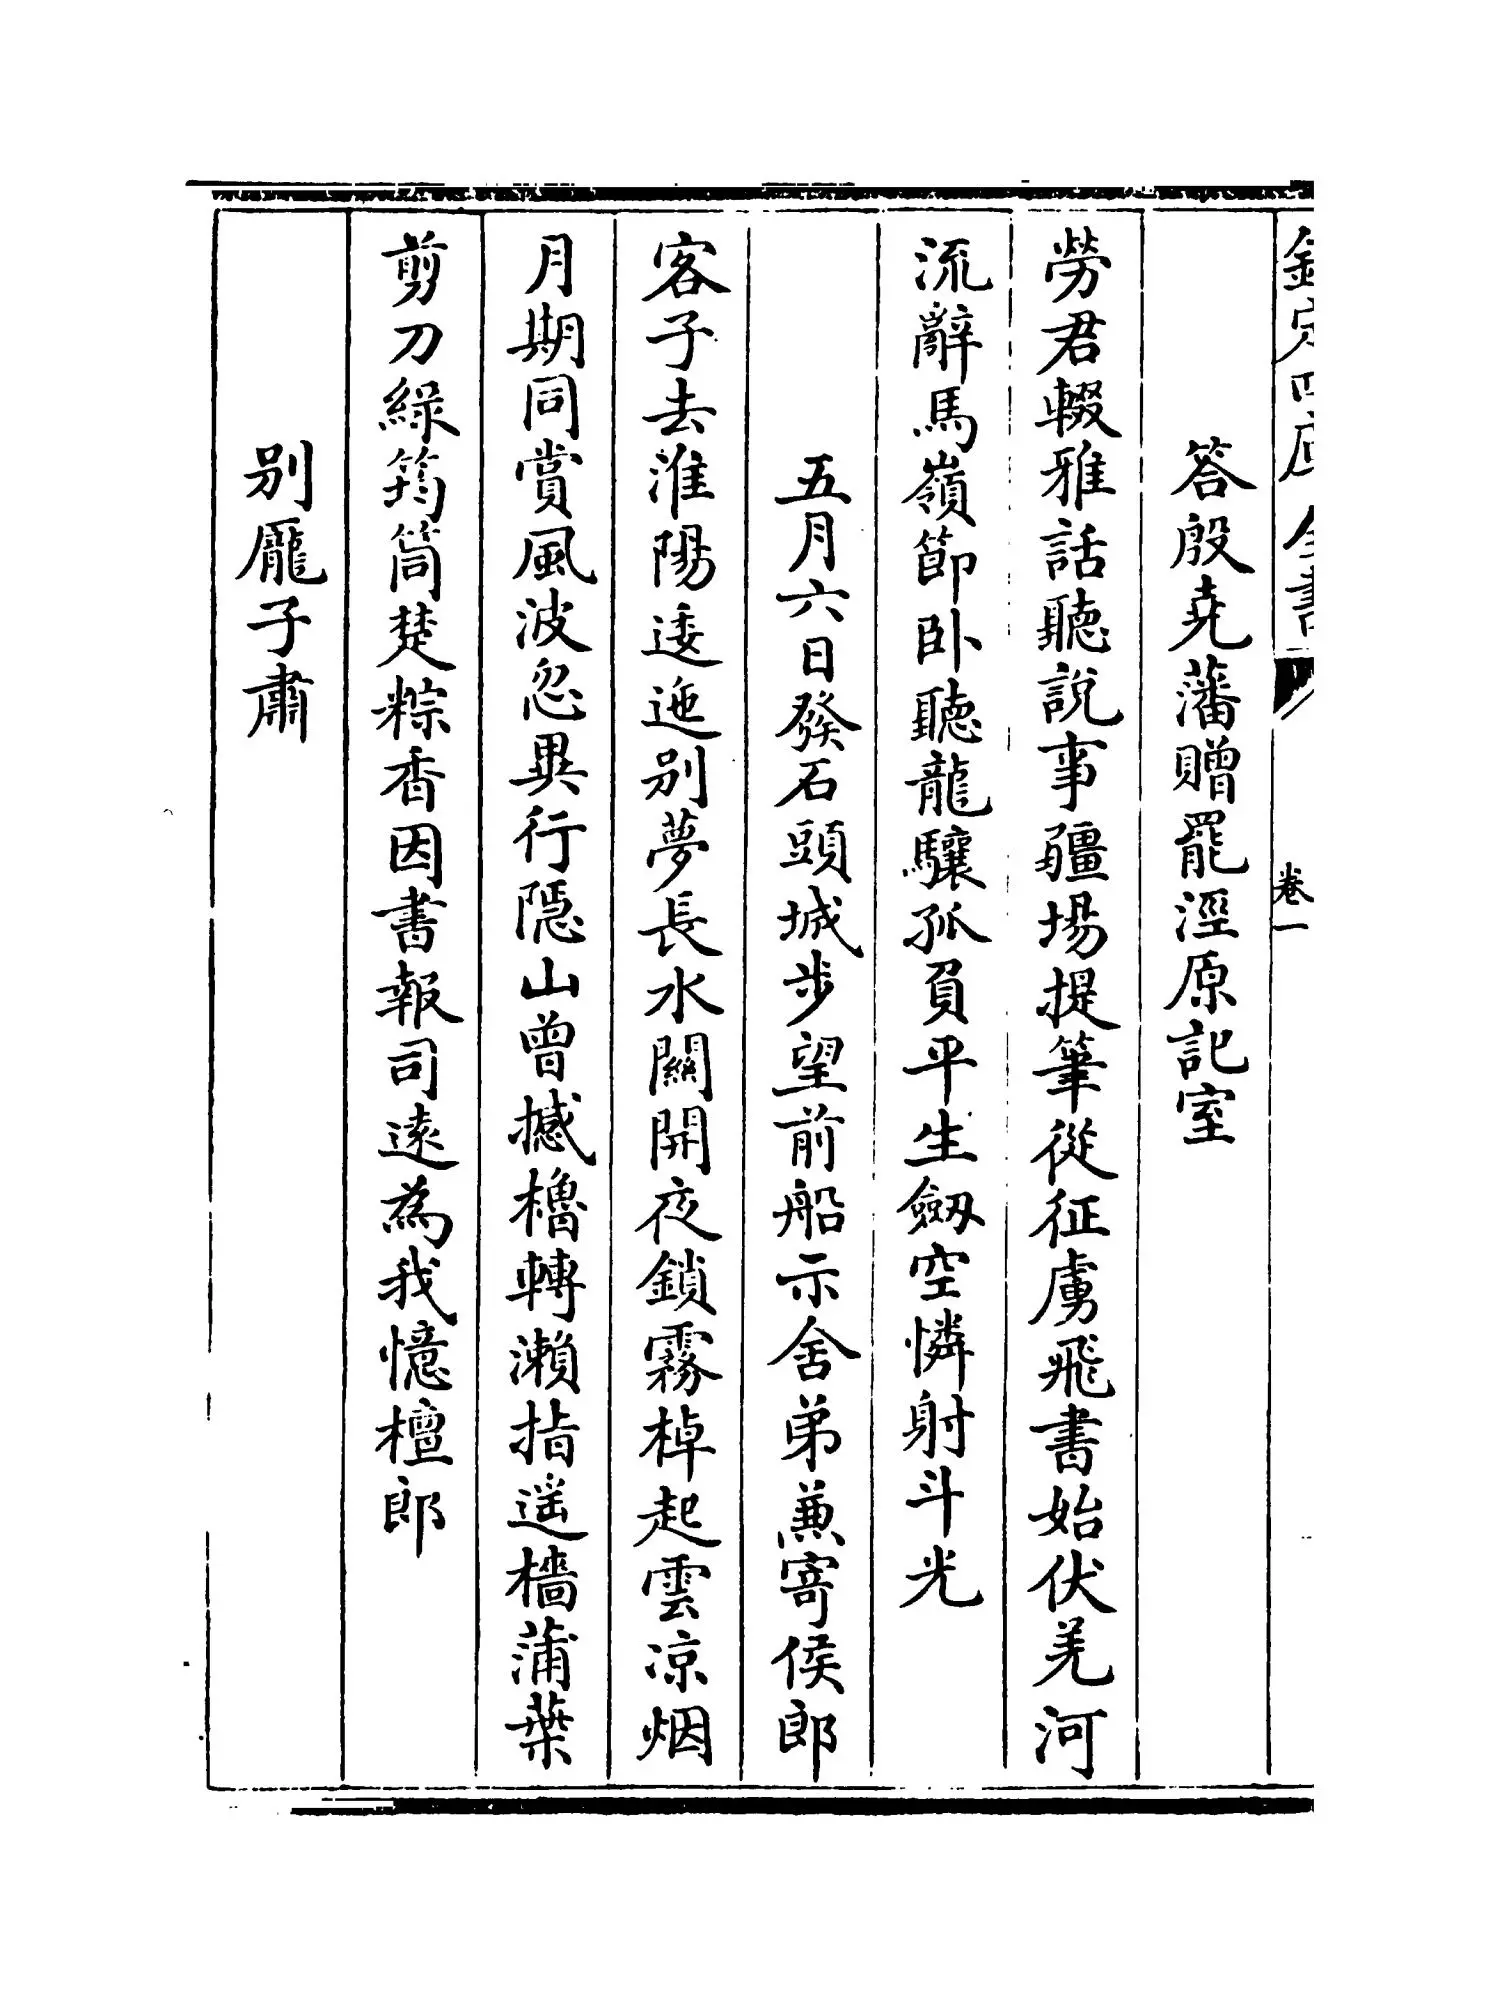 欽定四庫全書
卷一
答殷堯藩贈罷涇原記室
勞君輟雅話聽說事疆場提筆從征虜飛書始伏羌河
流辭馬嶺節卧聽龍驤孤負平生劒空憐射斗光
五月六日發石頭城步望前船示舍弟兼寄侯郎
客子去淮陽逶迤别夢長水關開夜鎖霧棹起雲凉烟
月期同賞風波忽異行隠山曾撼櫓轉瀨指遥檣蒲葉
剪刀綠筠筒楚粽香因書報司遠為我憶檀郎
别龎子肅